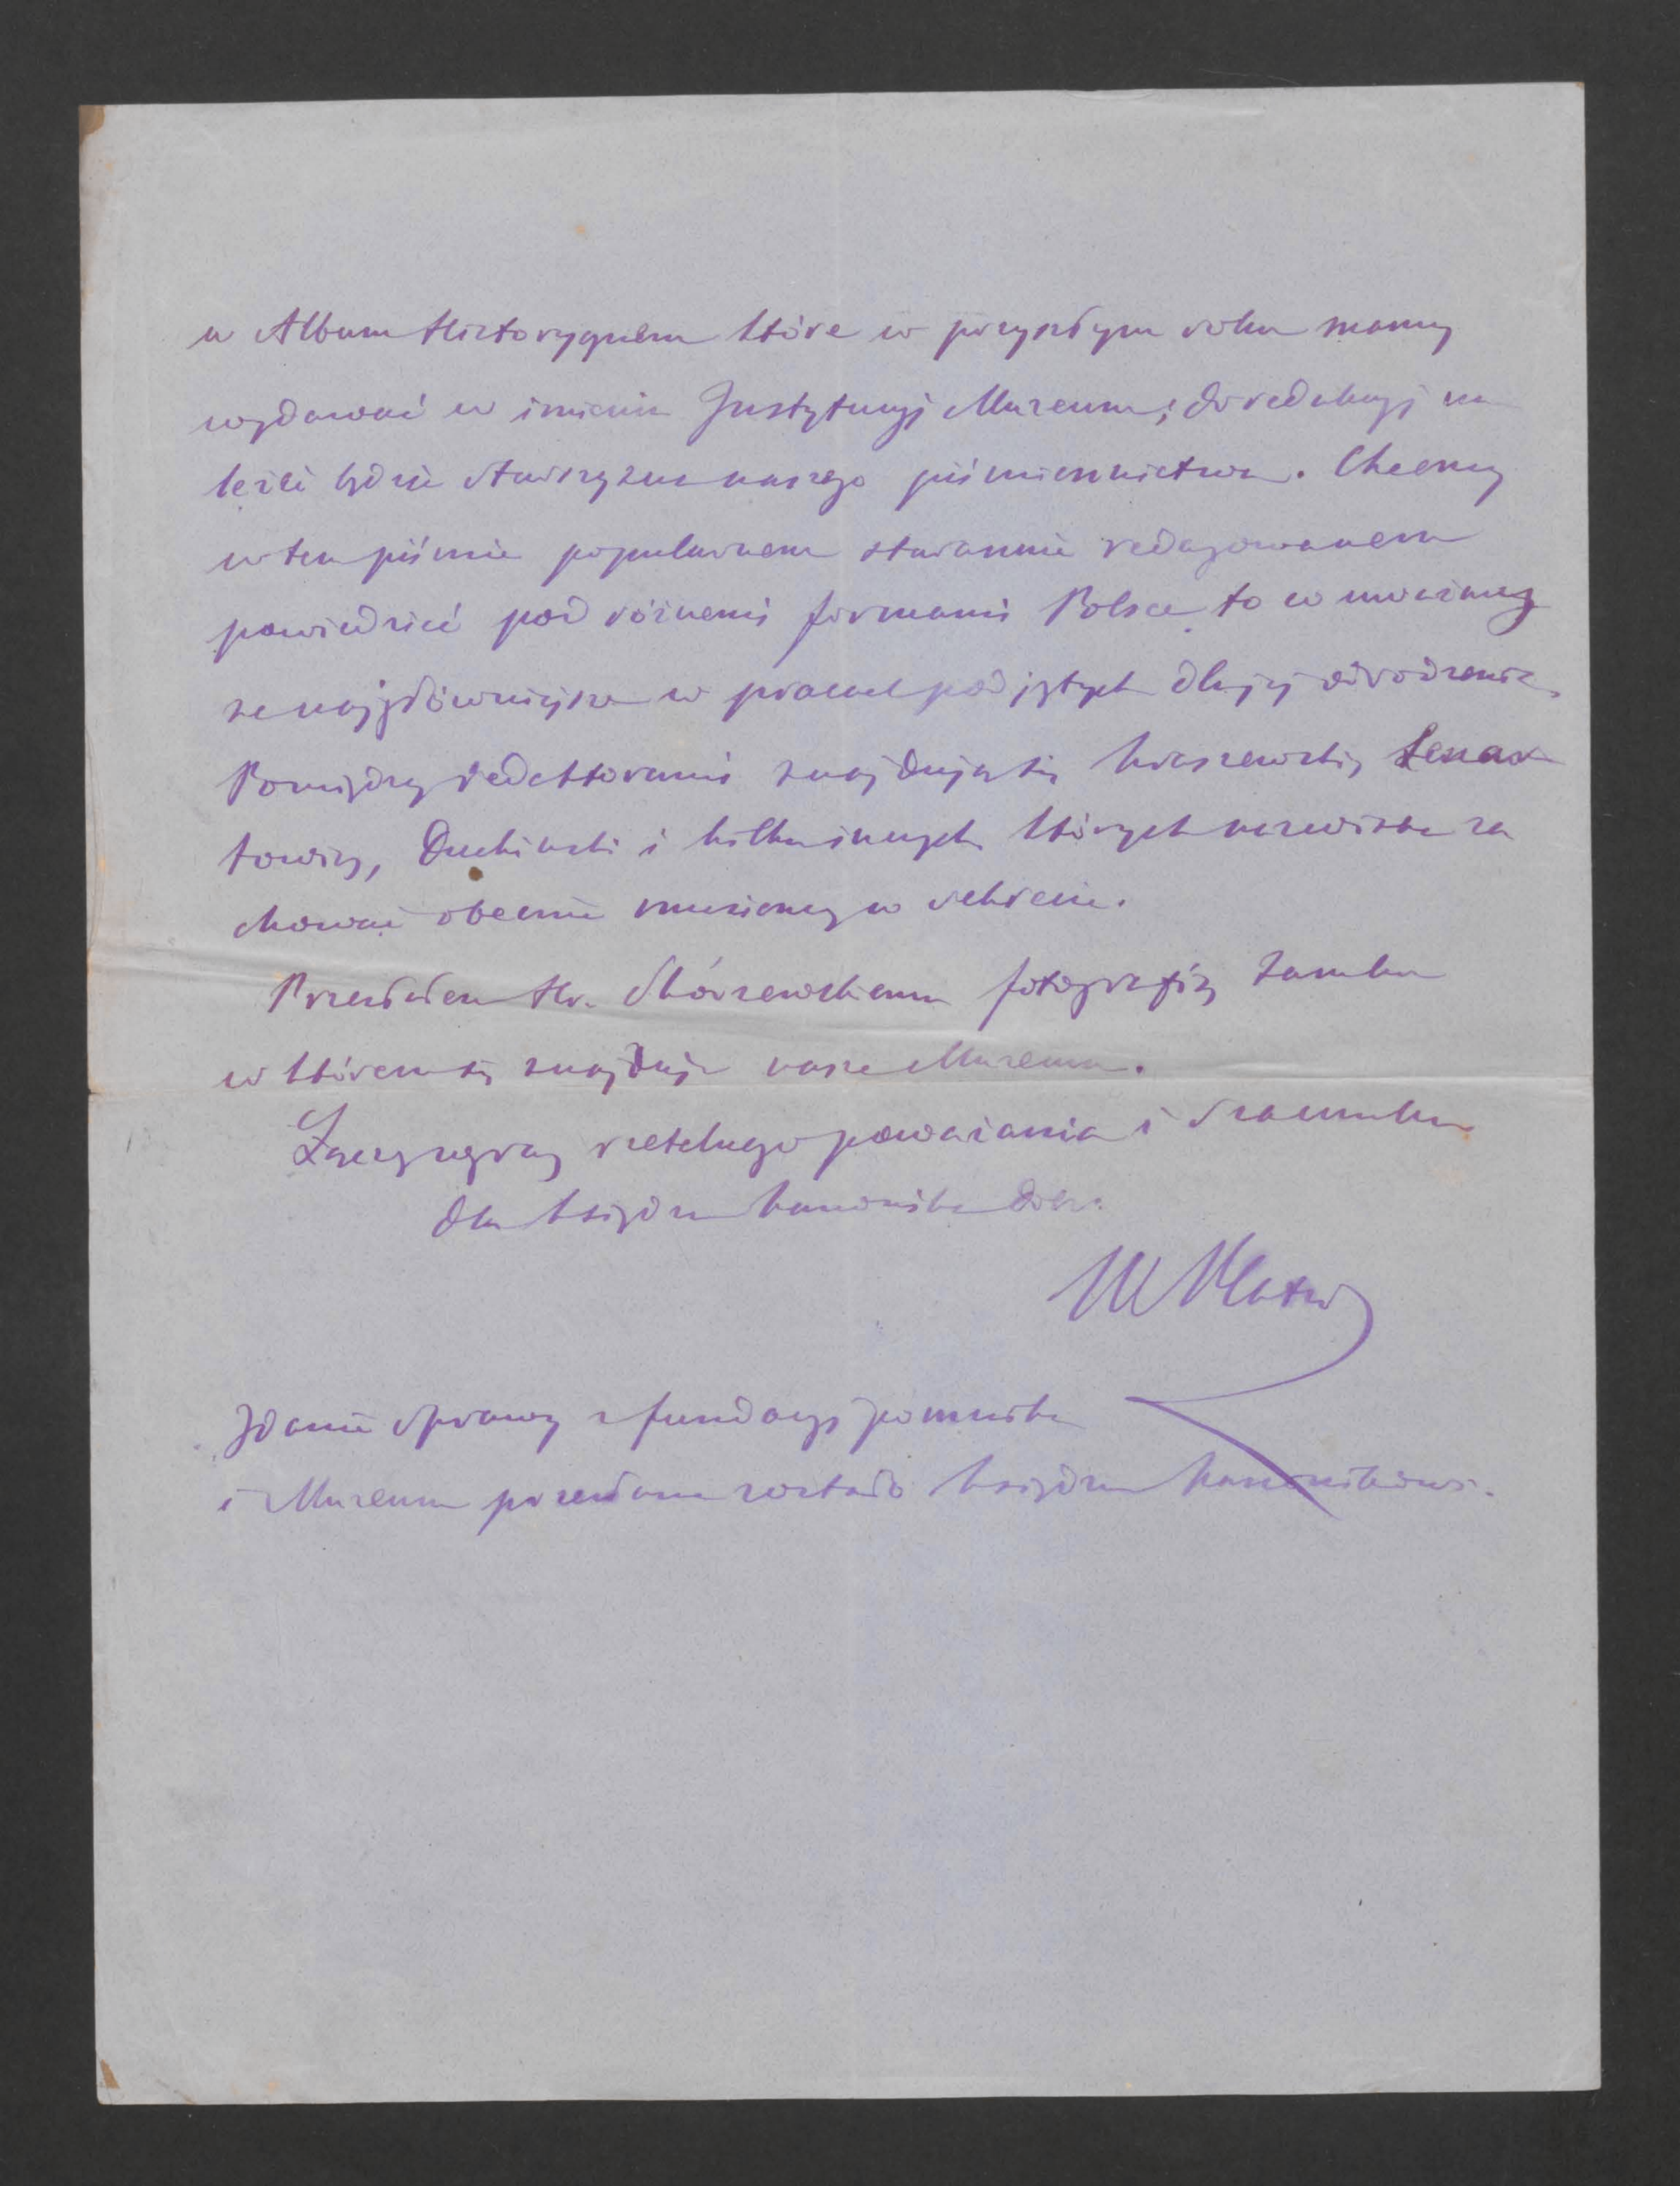 w Album Historycznem które w przyszłym roku mamy
wydawać w imieniu Instytucyj Muzeum; do redakcyj na
leżeć będzie starszyzna naszego piśmiennictwa. Chcemy
w tem piśmie popularnem starannie redagowanem
powiedzieć pod różnemi formami Polsce to co uważamy
za najgłówniejsze w pracach podjętych dla jej odrodzenia.
Pomiędzy redaktorami znajdują się Kraszewski, Lenar
towicz, Duchiński i kilku innych których nazwiska za
chować obecnie musiemy w sekrecie.
Przesłałem Hr. Skórzewskiemu fotografię Zamku
w którem się znajduje nasze Muzeum.
Łączę wyrazy rzetelnego poważania i szacunku
dla księdza kanonika Dobr.
W Plater
Zdanie sprawy z fundacyj pomnika
i Muzeum przesłane zostało księdzu kanonikowi.